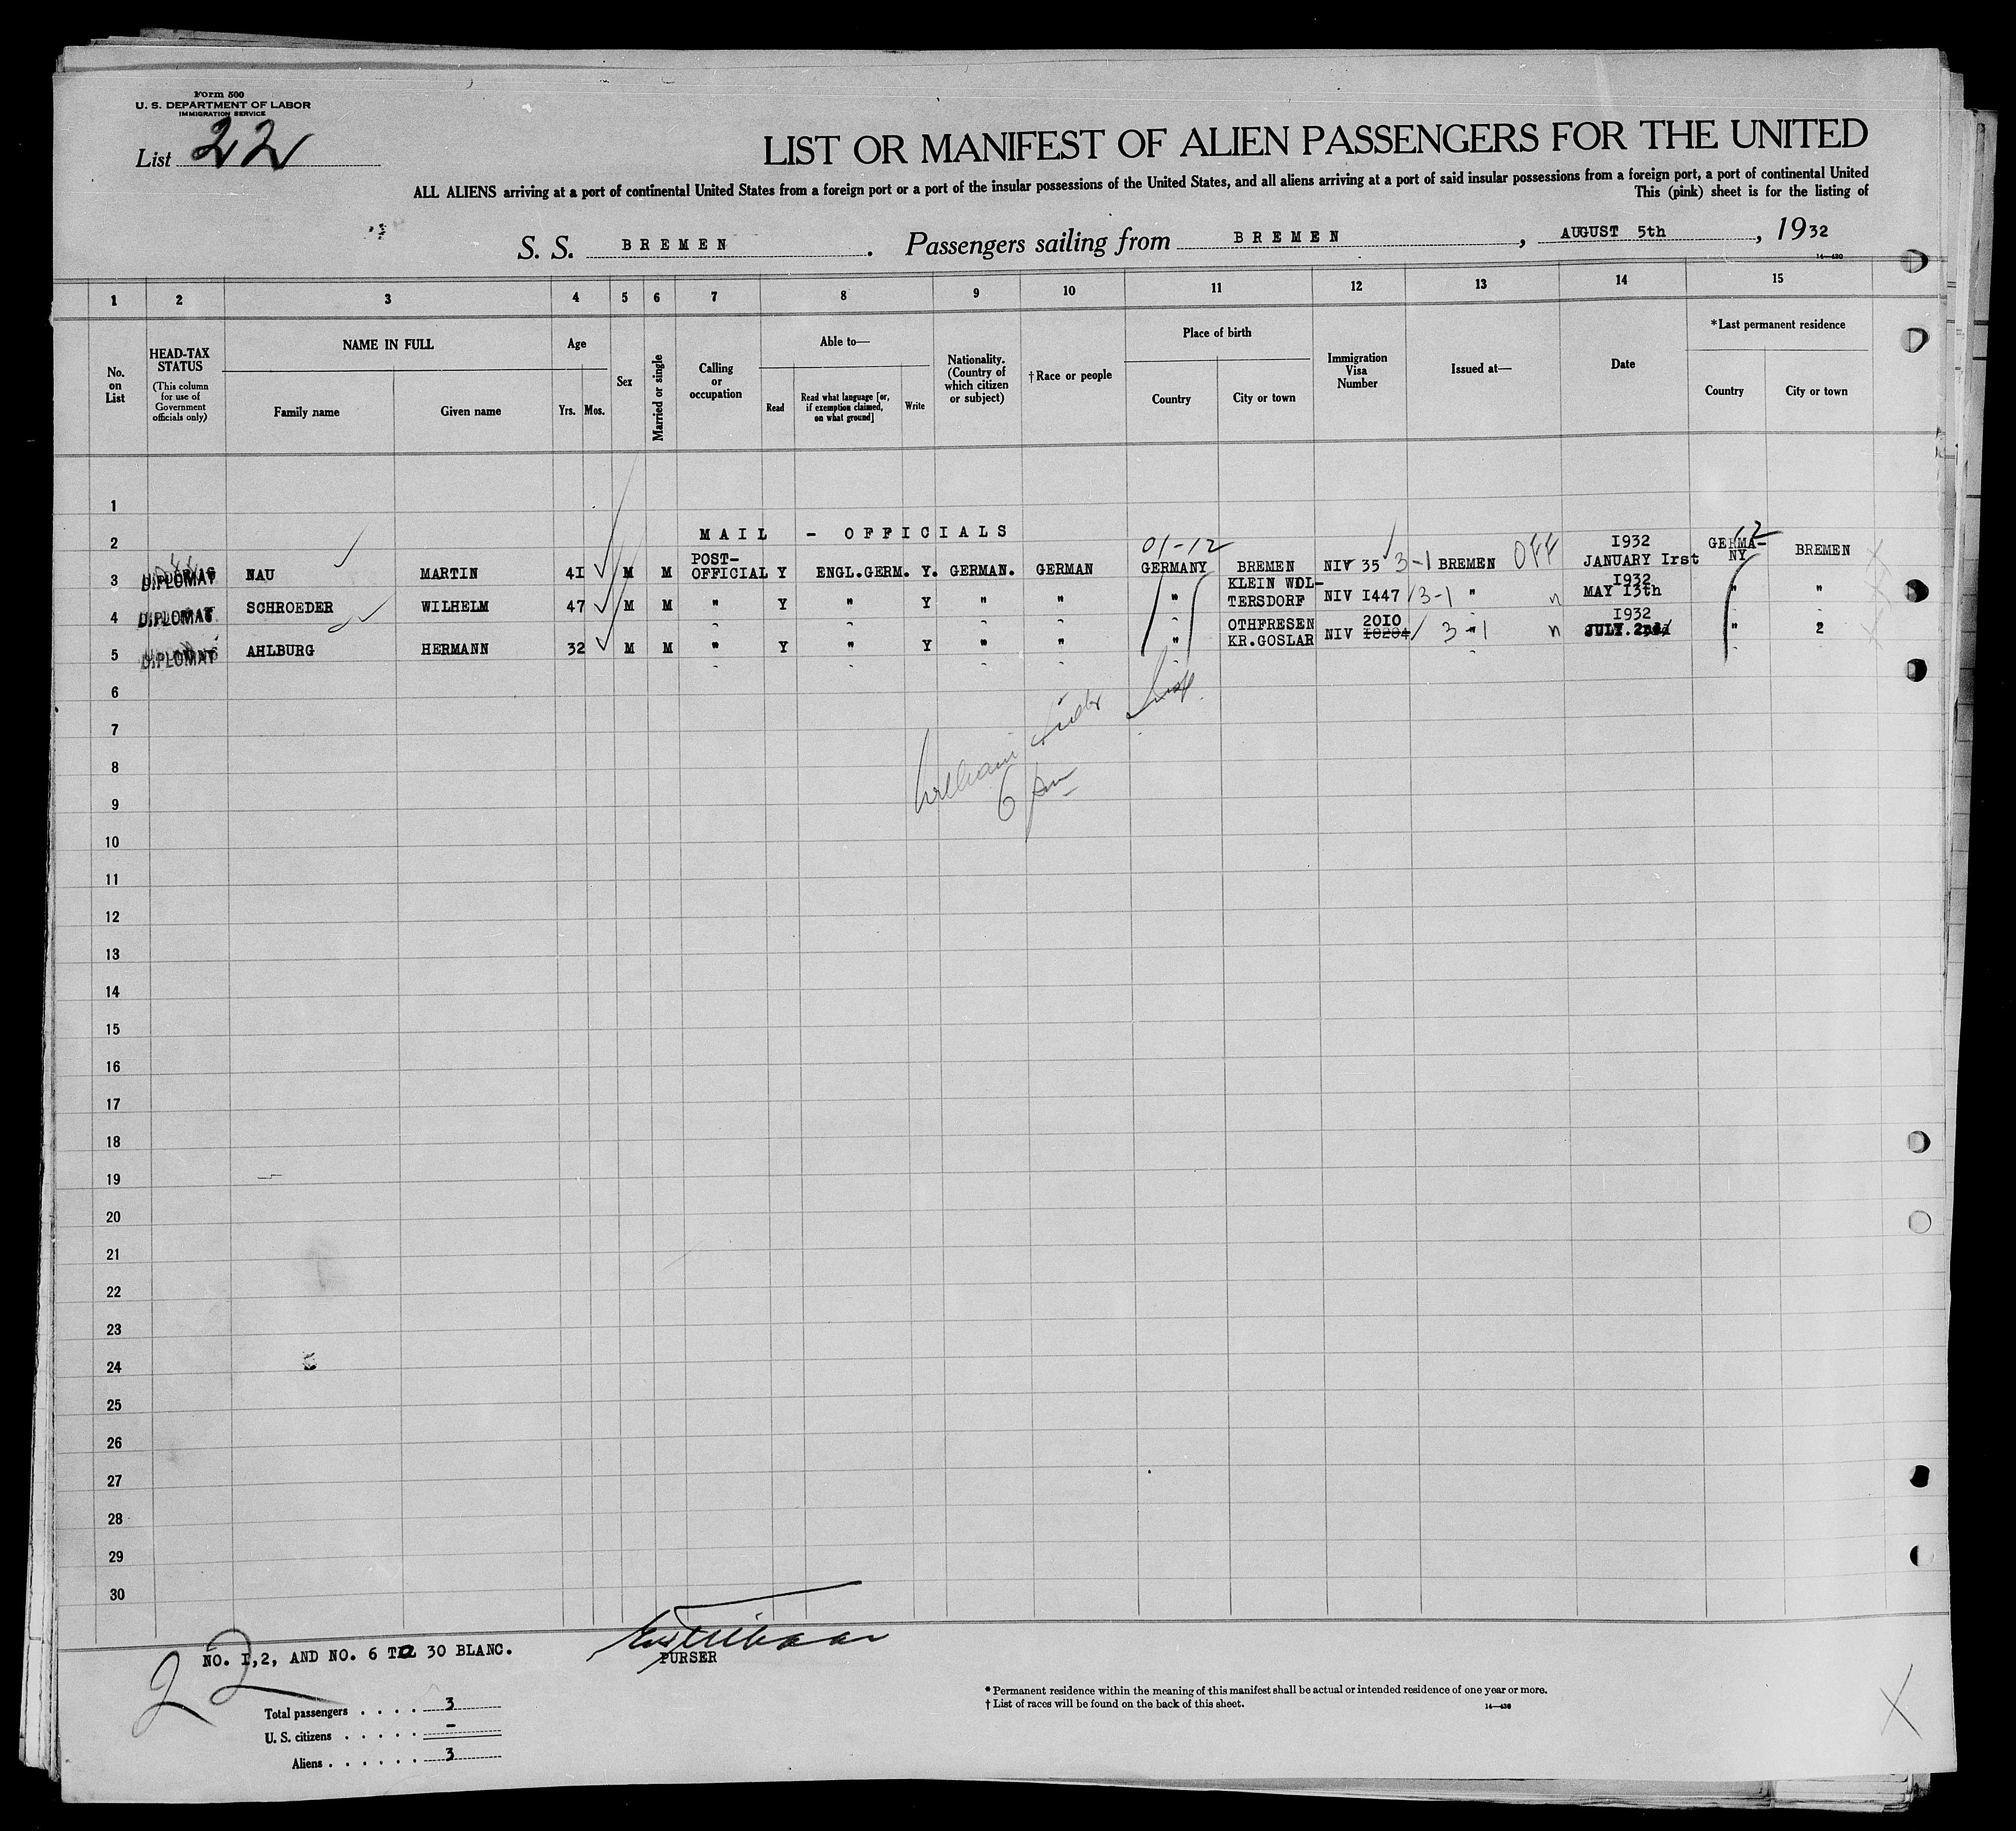 Form 500
U. S. DEPARTMENT OF LABOR
IMMIGRATION SERVICE
List 22
LIST OR MANIFEST OF ALIEN PASSENGERS FOR THE UNITED
ALL ALIENS arriving at a port of continental United States from a foreign port or a port of the insular possessions of the United States, and all aliens arriving at a port of said insular possessions from a foreign port, a port of continental United
This (pink) sheet is for the listing of
S. S. BREMEN. Passengers sailing from BREMEN, AUGUST 5th, 1932
14—430
1 2 3 4 5 6 7 8 9 10 11 12 13 14 15
No. on List
HEAD-TAX STATUS (This column for use of Government officials only)
NAME IN FULL
Family name Given name
Age
Yrs. Mos.
Sex
Married or single
Calling or occupation
Able to—
Read Read what language [or, if exemption claimed, on what ground] Write
Nationality. (Country of which citizen or subject)
† Race or people
Place of birth
Country City or town
Immigration Visa Number
Issued at—
Date
*Last permanent residence
Country City or town
1
2 MAIL - OFFICIALS
01-12 2
3 DIPLOMAT NAU MARTIN 4I M M POST-OFFICIAL Y ENGL.GERM. Y. GERMAN. GERMAN GERMANY BREMEN NIV 35 3-1 BREMEN OFF I932 JANUARY Irst GERMA-NY BREMEN
4 DIPLOMAT SCHROEDER WILHELM 47 M M " Y " Y " " " KLEIN WOL-TERSDORF NIV I447 3-1 " n I932 MAY I3th " "
5 DIPLOMAT AHLBURG HERMANN 32 M M " Y " Y " " " OTHFRESEN KR.GOSLAR NIV 20I0 I0204 3-1 " n I932 JULY 2nd " 2
6
7
8
9
6 pm
10
11
12
13
14
15
16
17
18
19
20
21
22
23
24
25
26
27
28
29
30
NO. I,2, AND NO. 6 TO 30 BLANC.
PURSER
22
Total passengers . . . . 3
U. S. citizens . . . . . -
Aliens . . . . . . 3
* Permanent residence within the meaning of this manifest shall be actual or intended residence of one year or more.
† List of races will be found on the back of this sheet.
14—430
X